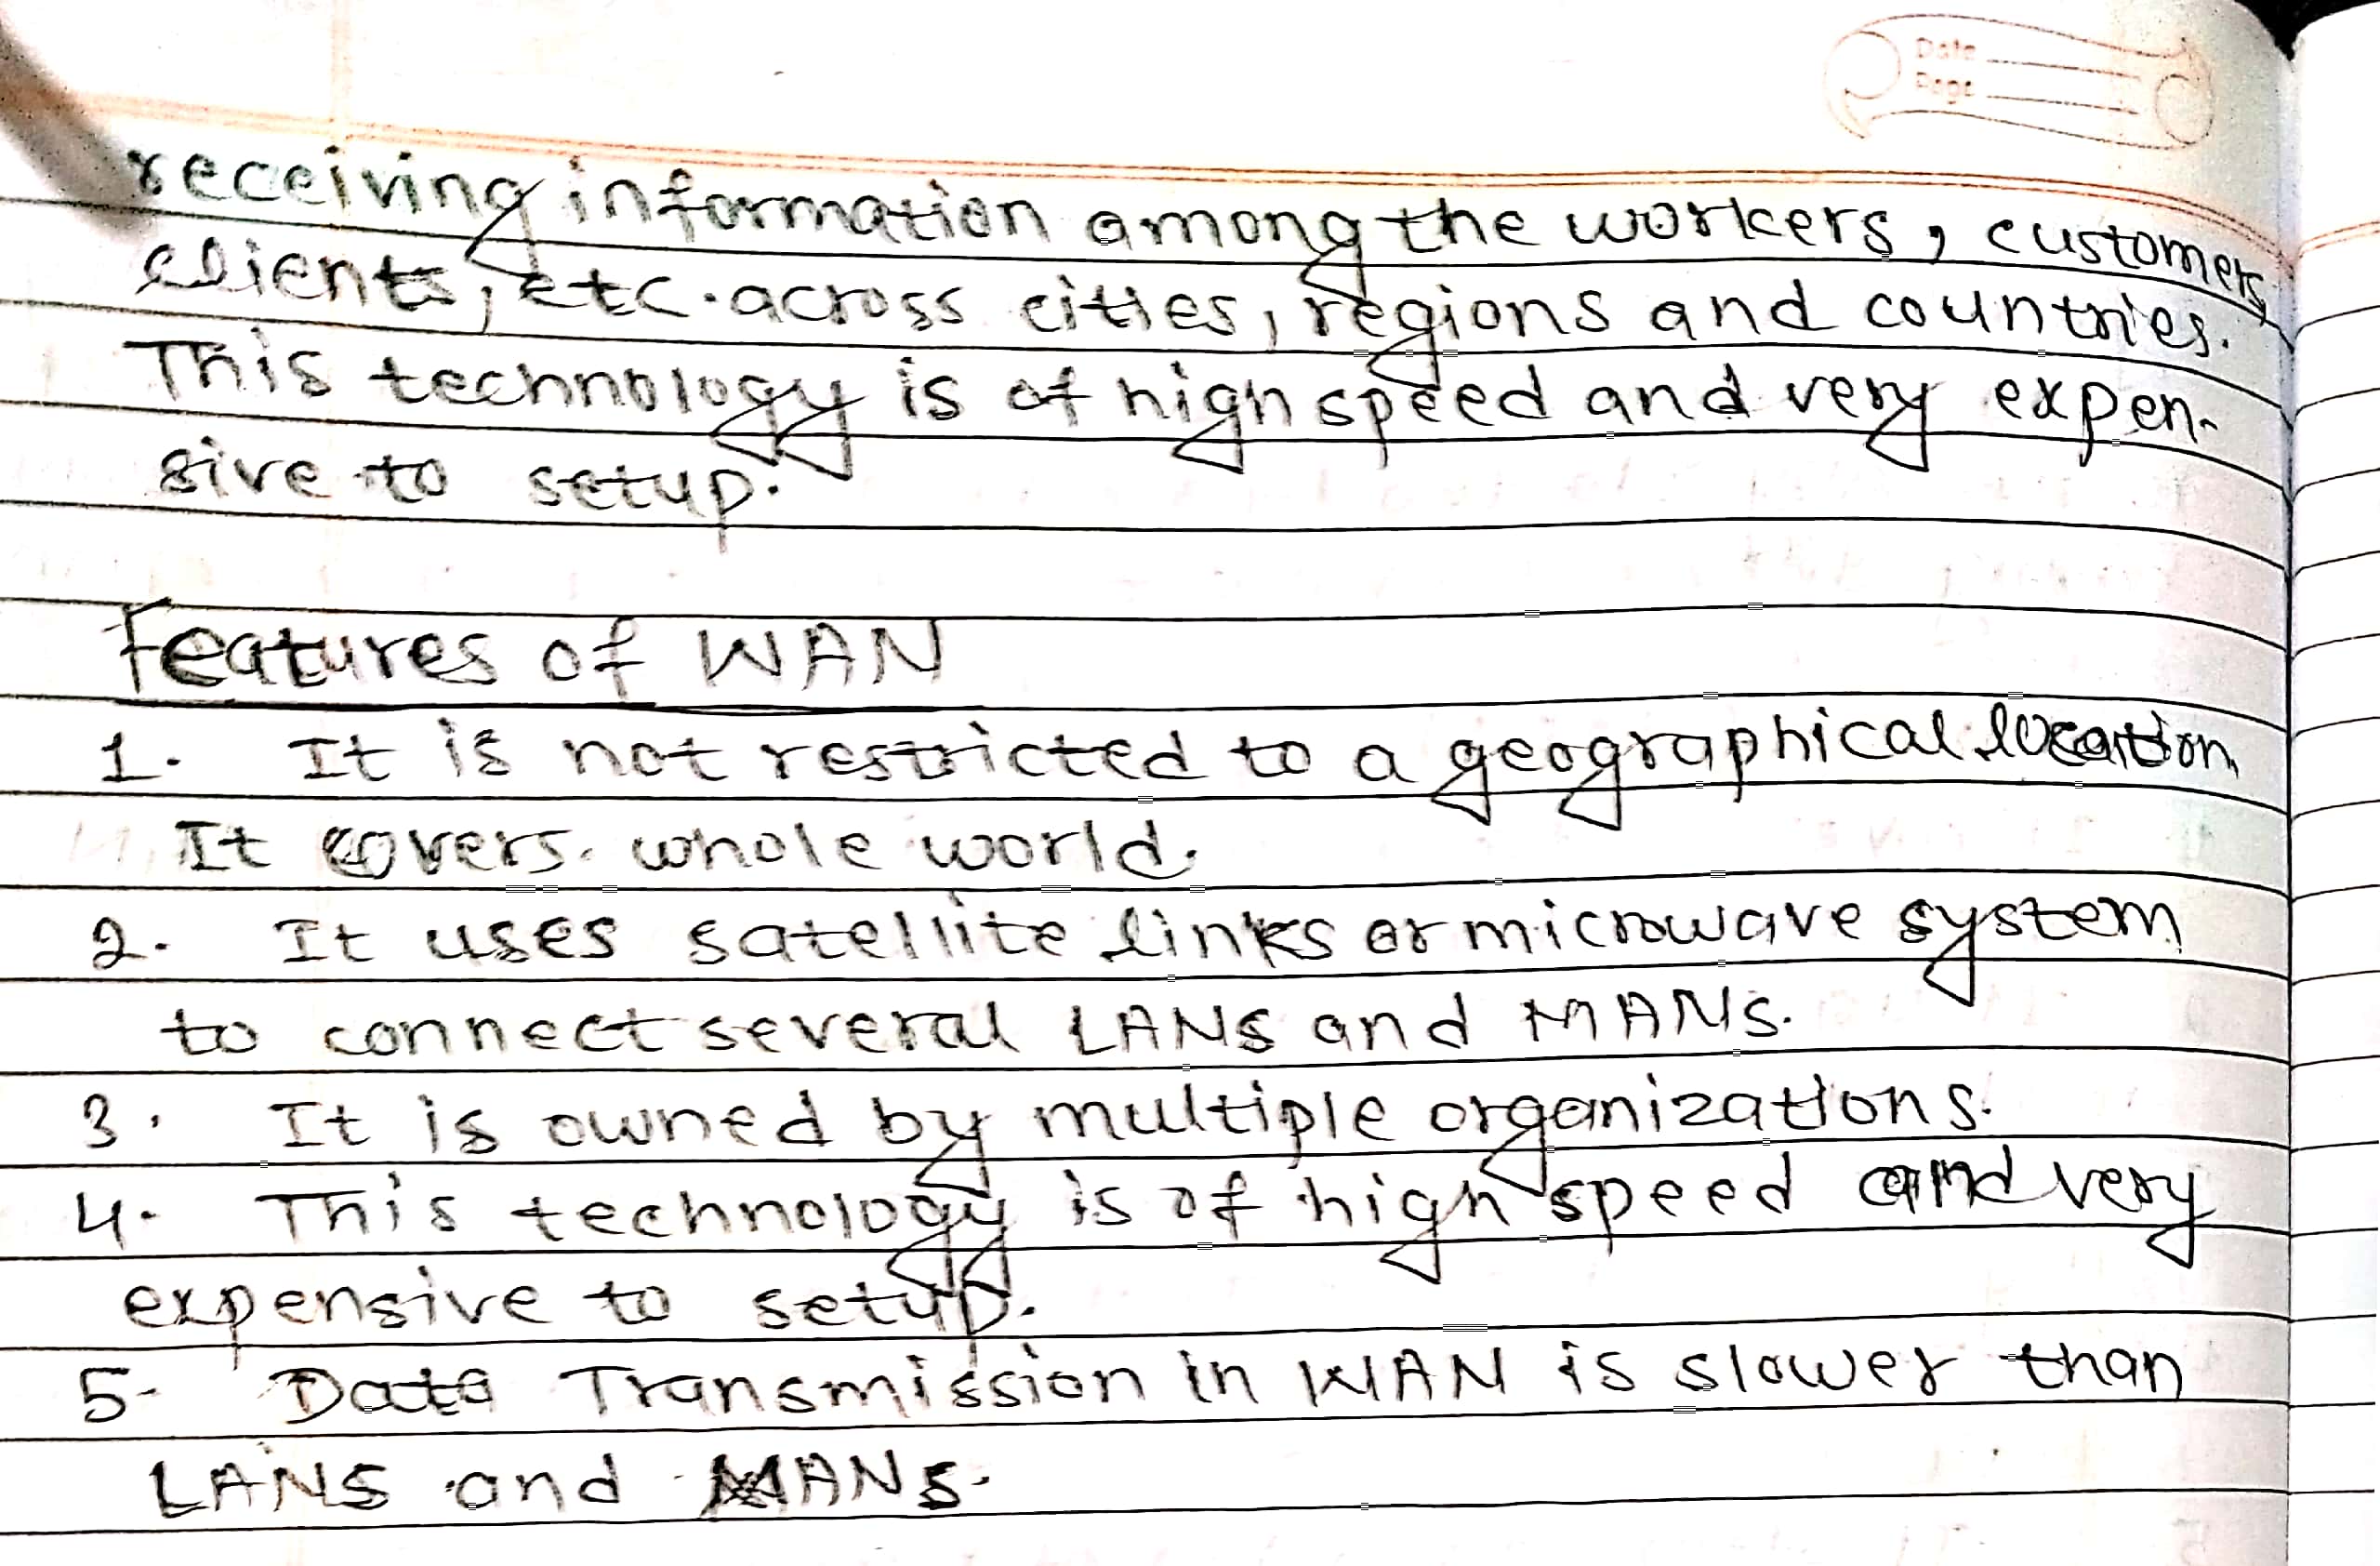 Date
Page
receiving information among the workers, customers,
clients, etc. across cities, regions and countries.
This technology is of high speed and very expen-
sive to setup.
Features of WAN
1. It is not restricted to a geographical location
It covers whole world.
2. It uses satellite links or microwave system
to connect several LANs and MANs.
3. It is owned by multiple organizations.
4. This technology is of high speed and very
expensive to setup.
5- Data Transmission in WAN is slower than
LANS and MANs.